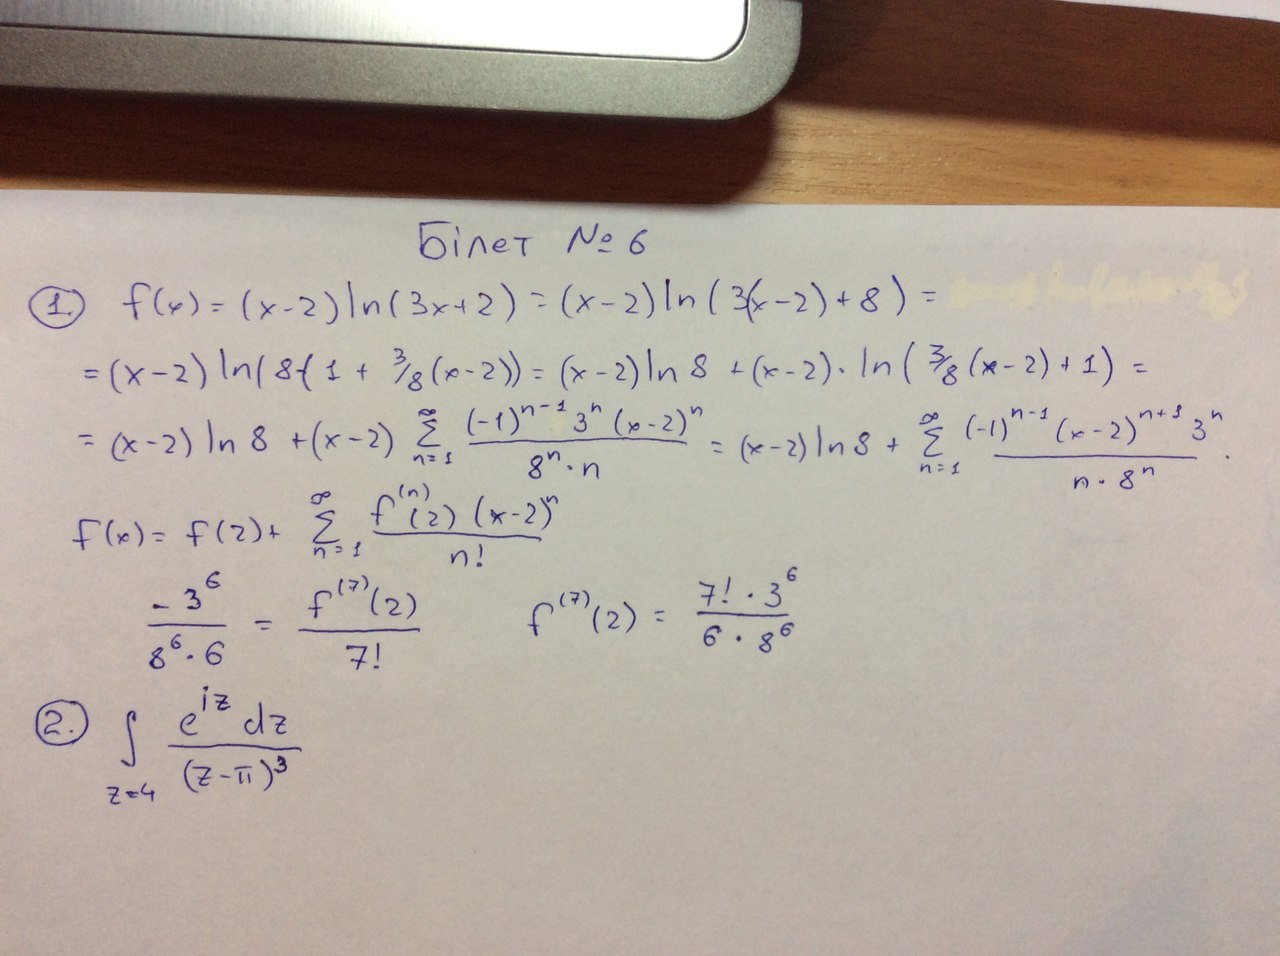 Білет № 6
1. f(x) = (x-2) ln(3x+2) = (x-2) ln(3(x-2)+8) =
= (x-2) ln(8(1 + 3/8 (x-2)) = (x-2) ln 8 + (x-2) · ln(3/8 (x-2) + 1) =
= (x-2) ln 8 + (x-2) ∑_{n=1}^{∞} \frac{(-1)^{n-1} 3^n (x-2)^n}{8^n · n} = (x-2) ln 8 + ∑_{n=1}^{∞} \frac{(-1)^{n-1} (x-2)^{n+1} 3^n}{n · 8^n} .
f(x) = f(2) + ∑_{n=1}^{∞} \frac{f^{(n)}(2) (x-2)^n}{n!}
\frac{-3^6}{8^6 · 6} = \frac{f^{(7)}(2)}{7!} f^{(7)}(2) = \frac{7! · 3^6}{6 · 8^6}
2. ∫_{z=4} \frac{e^{iz} dz}{(z-π)^3}